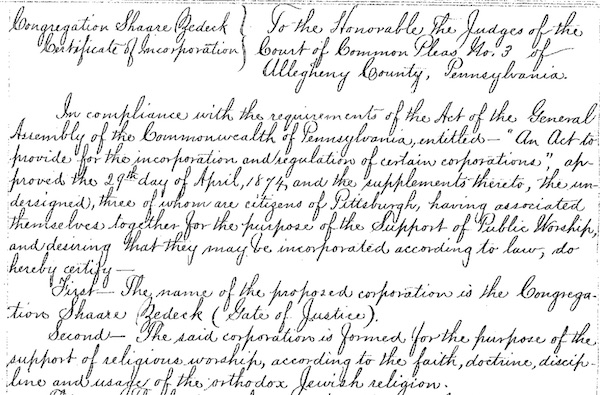 Congregation Shaare Zedeck } To the Honorable the Judges of the
Certificate of Incorporation } Court of Common Pleas No. 3 of
Allegheny County, Pennsylvania.
In compliance with the requirements of the Act of the General
Assembly of the Commonwealth of Pennsylvania, entitled — "An Act to
provide for the incorporation and regulation of certain corporations", ap-
proved the 29th day of April, 1874, and the supplements thereto, the un-
dersigned, three of whom are citizens of Pittsburgh, having associated
themselves together for the purpose of the Support of Public Worship,
and desiring that they may be incorporated according to law, do
hereby certify —
First — The name of the proposed corporation is the Congrega-
tion Shaare Zedeck (Gate of Justice).
Second — The said corporation is formed for the purpose of the
support of religious worship, according to the faith, doctrine, discip-
line and usage of the orthodox Jewish religion.